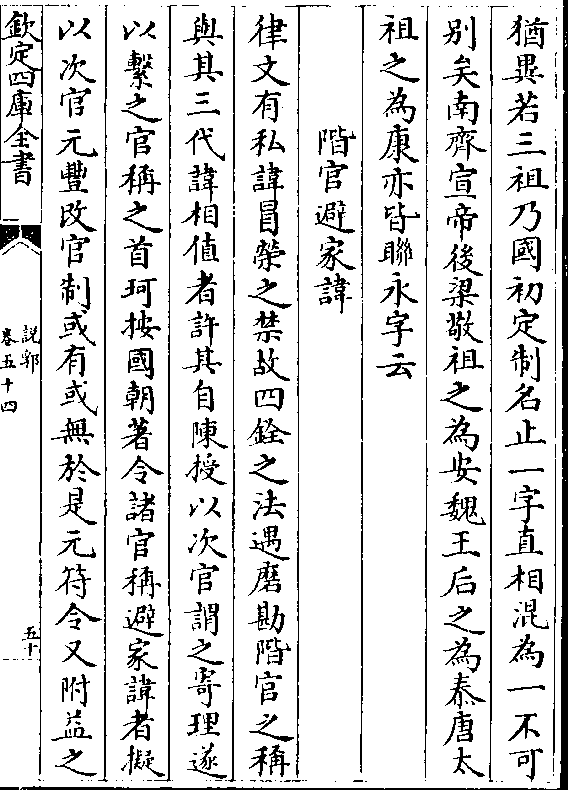 猶異若三祖乃國初定制名止一字直相混為一不可
别矣南齊宣帝後梁敬祖之為安魏王后之為㤗唐太
祖之為康亦皆聮永字云
階官避家諱
律文有私諱冒榮之禁故四銓之法遇磨勘階官之稱
與其三代諱相值者許其自陳授以次官謂之寄理遂
以繫之官稱之首珂按國朝著令諸官稱避家諱者擬
以次官元豐改官制或有或無於是元符令又附益之
欽定四庫全書
說郛
卷五十四
五十